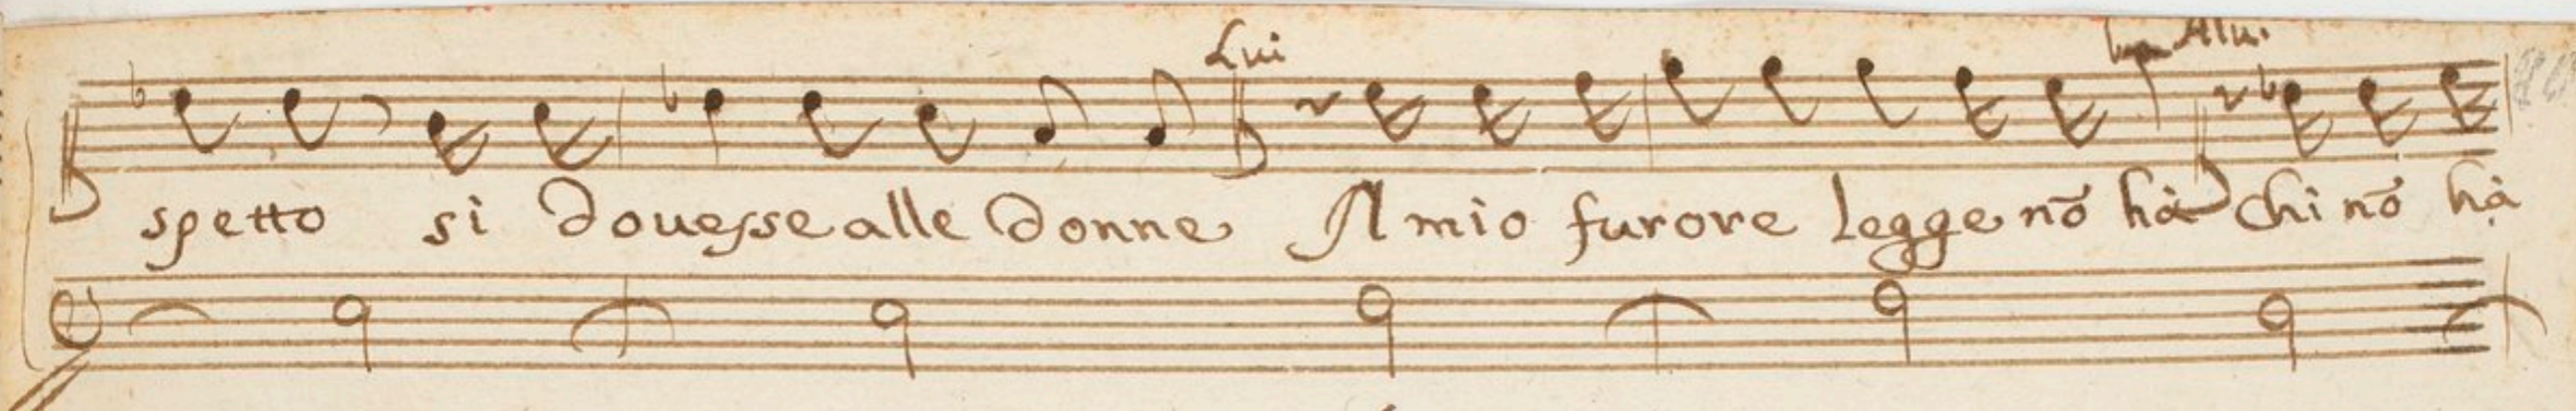 Lui Alui.
spetto si douesse alle donne Il mio furore legge nō hà chi nō hà